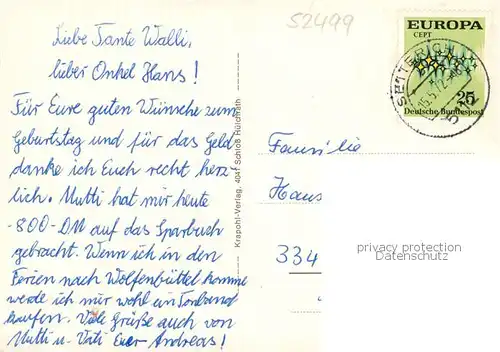 Liebe Tante Walli,
lieber Onkel Hans!
Für Eure guten Wünsche zum
Geburtstag und für das Geld
danke ich Euch recht herz
lich. Mutti hat mir heute
-800-DM auf das Sparbuch
gebracht. Wenn ich in den
Ferien nach Wolfenbüttel komme
werde ich mir wohl ein Tonband
kaufen. Viele Grüße auch von
Mutti u. Vati Euer Andreas!
Krapohl-Verlag, 4041 Schloß Hülchrath
52499
EUROPA
CEPT
25
Deutsche Bundespost
SETTERICH
Familie
Hans
334
privacy protection
Datenschutz